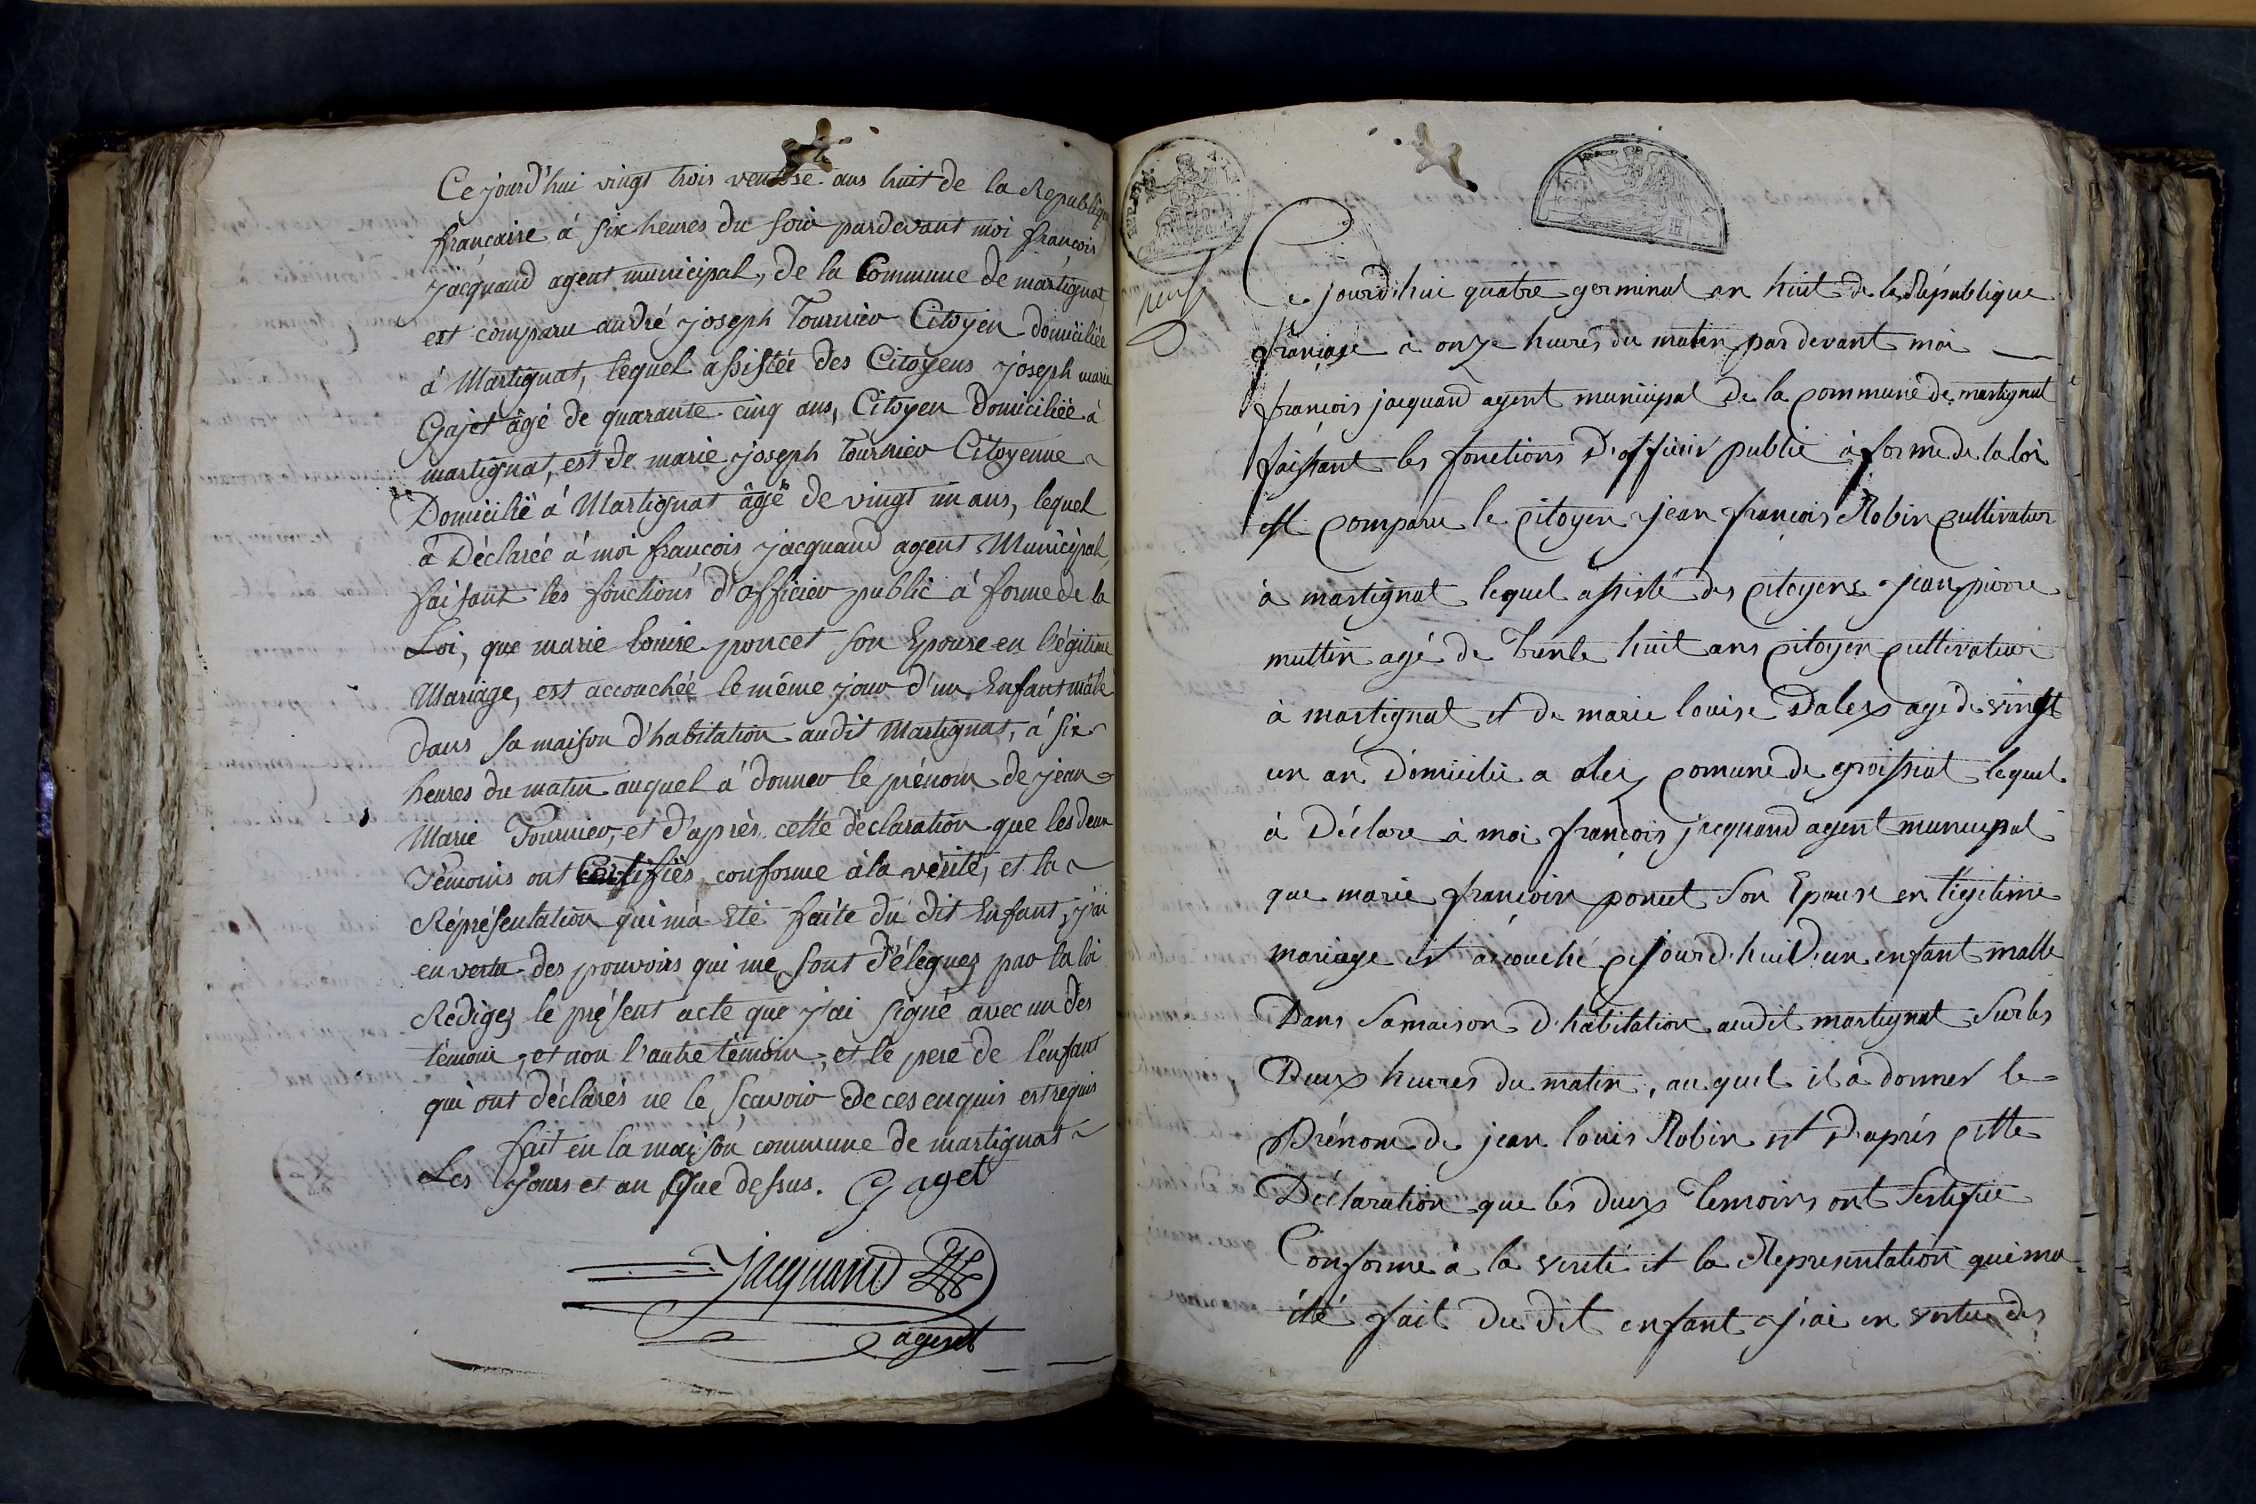 Ce jourd'hui vingt trois ventose ans huit de la Republique
française à six heures du soir pardevant moi françois
jacquand agent municipal, de la Commune de martignat
est comparu andré joseph Tournier Citoyen domiciliée
à Martignat, lequel assistée des Citoyens joseph marie
Gajet âgé de quarante cinq ans, Citoyen Domiciliéé à
martignat, est de marie joseph Tournier Citoyenne
Domicilië à Martignat âgé de vingt un ans, lequel
à Déclarée à moi françois jacquand agent Municipal,
faisant les fonctions d'officier public à forme de la
Loi, que marie louise poncet son Epouse en légitime
Mariage, est accouchée le même jour d'un Enfant mâle
dans sa maison d'habitation audit Martignat, à six
heures du matin auquel à donner le prénom de jean
Marie Tournier, et d'après cette déclaration que les deux
Témoins ont Certifiés conforme à la vérité, et la
Réprésentation qui mà été faite du dit Enfant, j'ai
en vertu des pouvoirs qui me sont délégués par la loi
Rédigez le présent acte que j'ai signé avec un des
témoin, et non l'autre témoin, et le pere de l'enfant
qui ont déclarés ne le sçavoir de ces enquis et requis
fait en la maison commune de martignat
Les jours et an Que dessus. Gaget
Jacquand
agent
Ce jourd'hui quatre germinal an huit de la République
françaje a onze heures du matin par devant moi
françois jacquand agent municipal de la commune de martignat
faissant les fonctions D'officier public à forme de la loi
est comparu le citoyen jean françois Robin cultivateur
à martignat lequel assisté des citoyens jean pierre
muttin agé de trente huit ans citoyen cultivateur
à martignat et de marie louise Dalex agé de vingt
un an Domicilié a alex comune de groissiat lequel
à Déclare à moi françois jacquand agent municipal
que marie francoise poncet son Epouse en légitime
mariage est acouché ce jourd'hui D'un enfant malle
Dans sa maison d'habitation audit martignat sur les
Deux heures du matin, auquel il à donner le
Prénom de jean louis Robin et D'aprés cette
Déclaration que les deux temoins ont Sertifié
Conforme à la verité et la Representation qui ma
été fait du dit enfant j'ai en vertu des